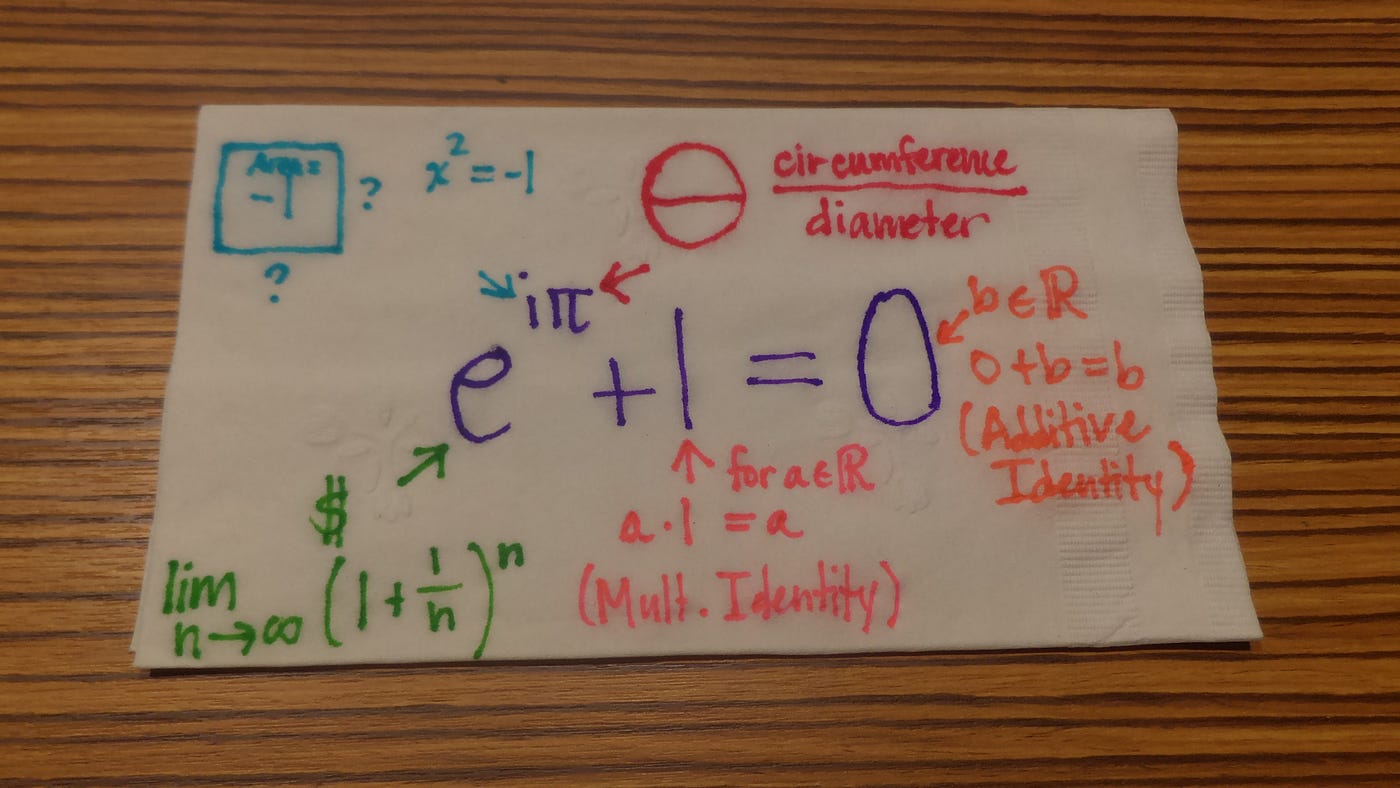 Area = -1
?
?
x² = -1
circumference
diameter
e^{iπ} + 1 = 0
b ∈ ℝ
0 + b = b
(Additive
Identity)
for a ∈ ℝ
a · 1 = a
(Mult. Identity)
$
lim n→∞ (1 + 1/n)^n